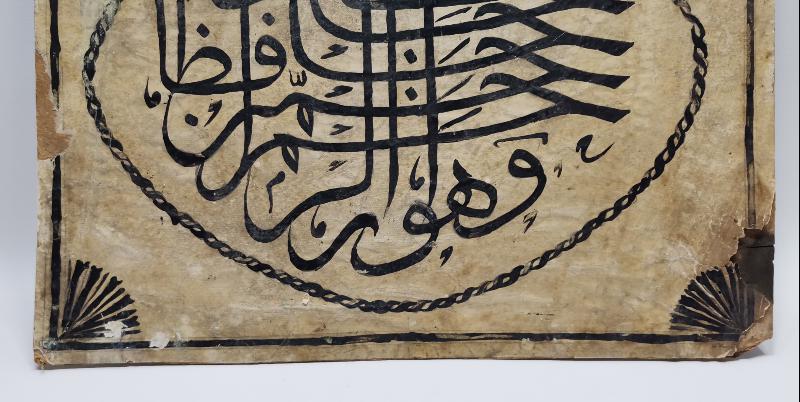 حافظا وهو ارحم الراحمين